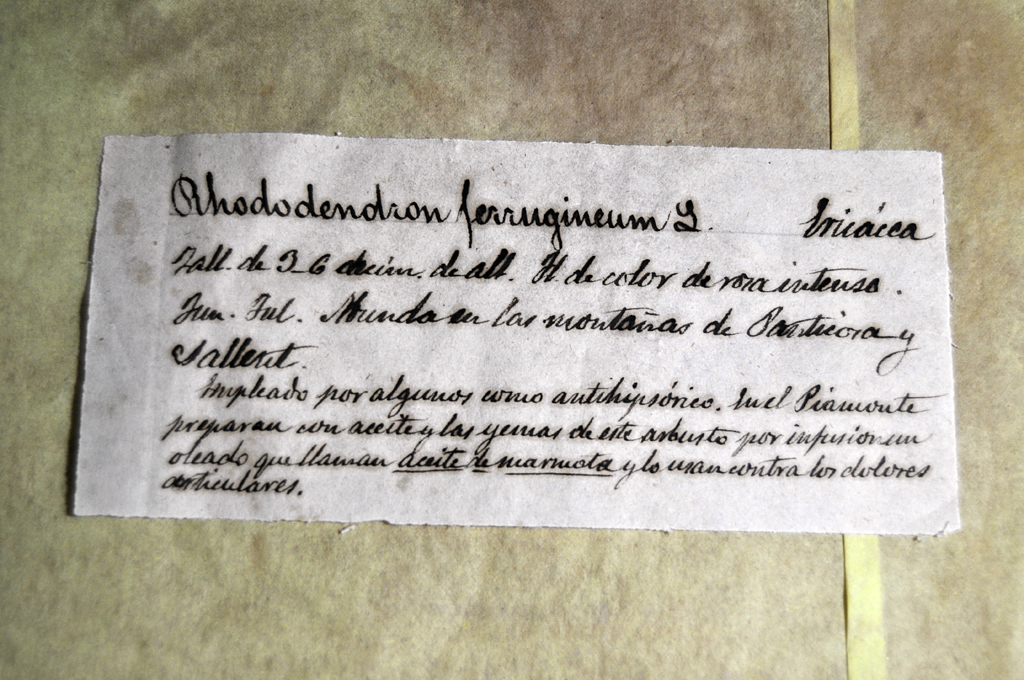 Rhododendron ferrugineum L. Ericácea
Tall. de 3-6 decím. de alt. Fl. de color de rosa intenso.
Jun. Jul. Abunda en las montañas de Panticosa y
Sallent.
Empleado por algunos como antihipsórico. En el Piamonte
preparan con aceite y las yemas de este arbusto por infusion un
oleado que llaman aceite de marmota y lo usan contra los dolores
articulares.